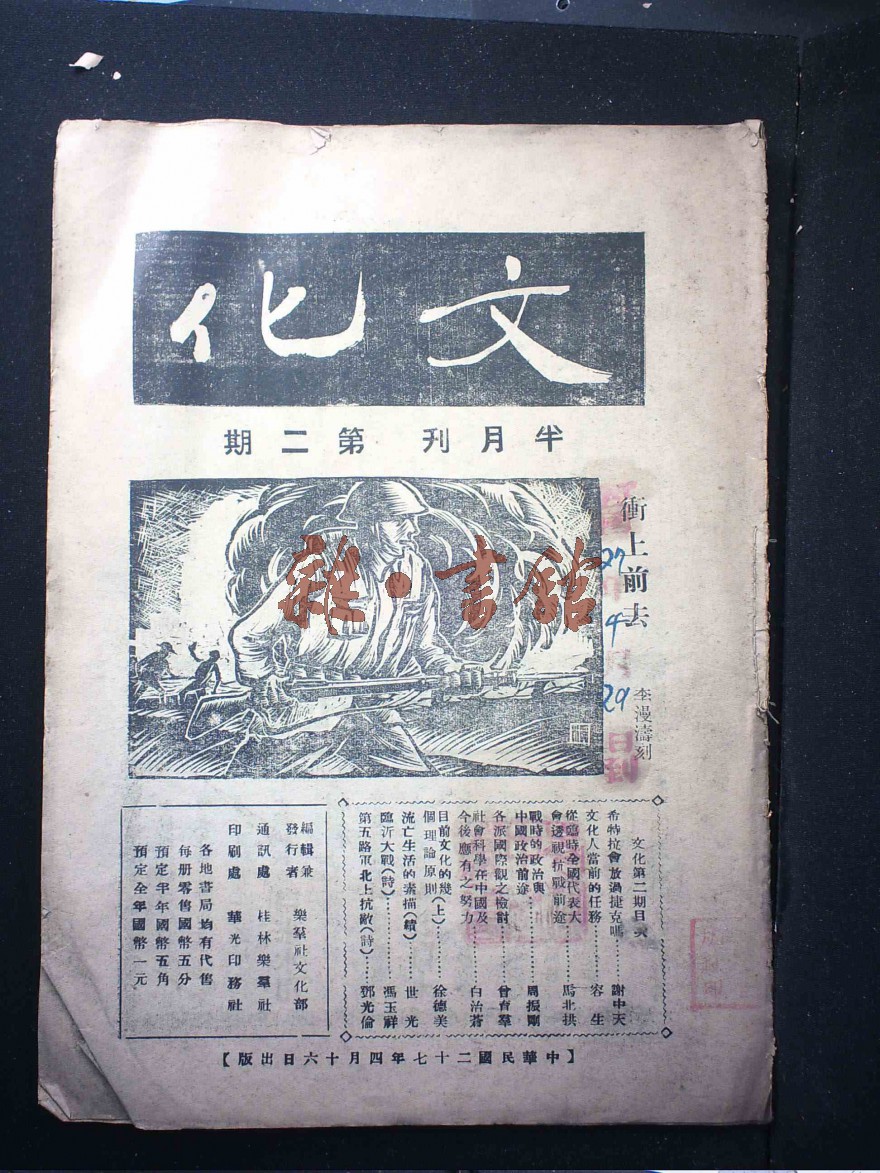 文化
半月刊 第二期
衝上前去 李漫濤刻
27 4 29
日到
雜·書館
文化第二期目次
希特拉會放過捷克嗎……謝中天
文化人當前的任務……容生
從臨時全國代表大
會透視抗戰前途……馬北拱
戰時的政治與
中國政治前途……周振剛
各派國際觀之檢討……曾育羣
社會科學在中國及
今後應有之努力……白治蒼
目前文化的幾
個理論原則(上)……徐德美
流亡生活的素描(續)……世光
臨沂大戰(詩)……馮玉祥
第五路軍北上抗敵(詩)……鄧光倫
編輯兼發行者 樂羣社文化部
通訊處 桂林樂羣社
印刷處 華光印務社
各地書局均有代售
每册零售國幣五分
預定半年國幣五角
預定全年國幣一元
【中華民國二十七年四月十六日出版】